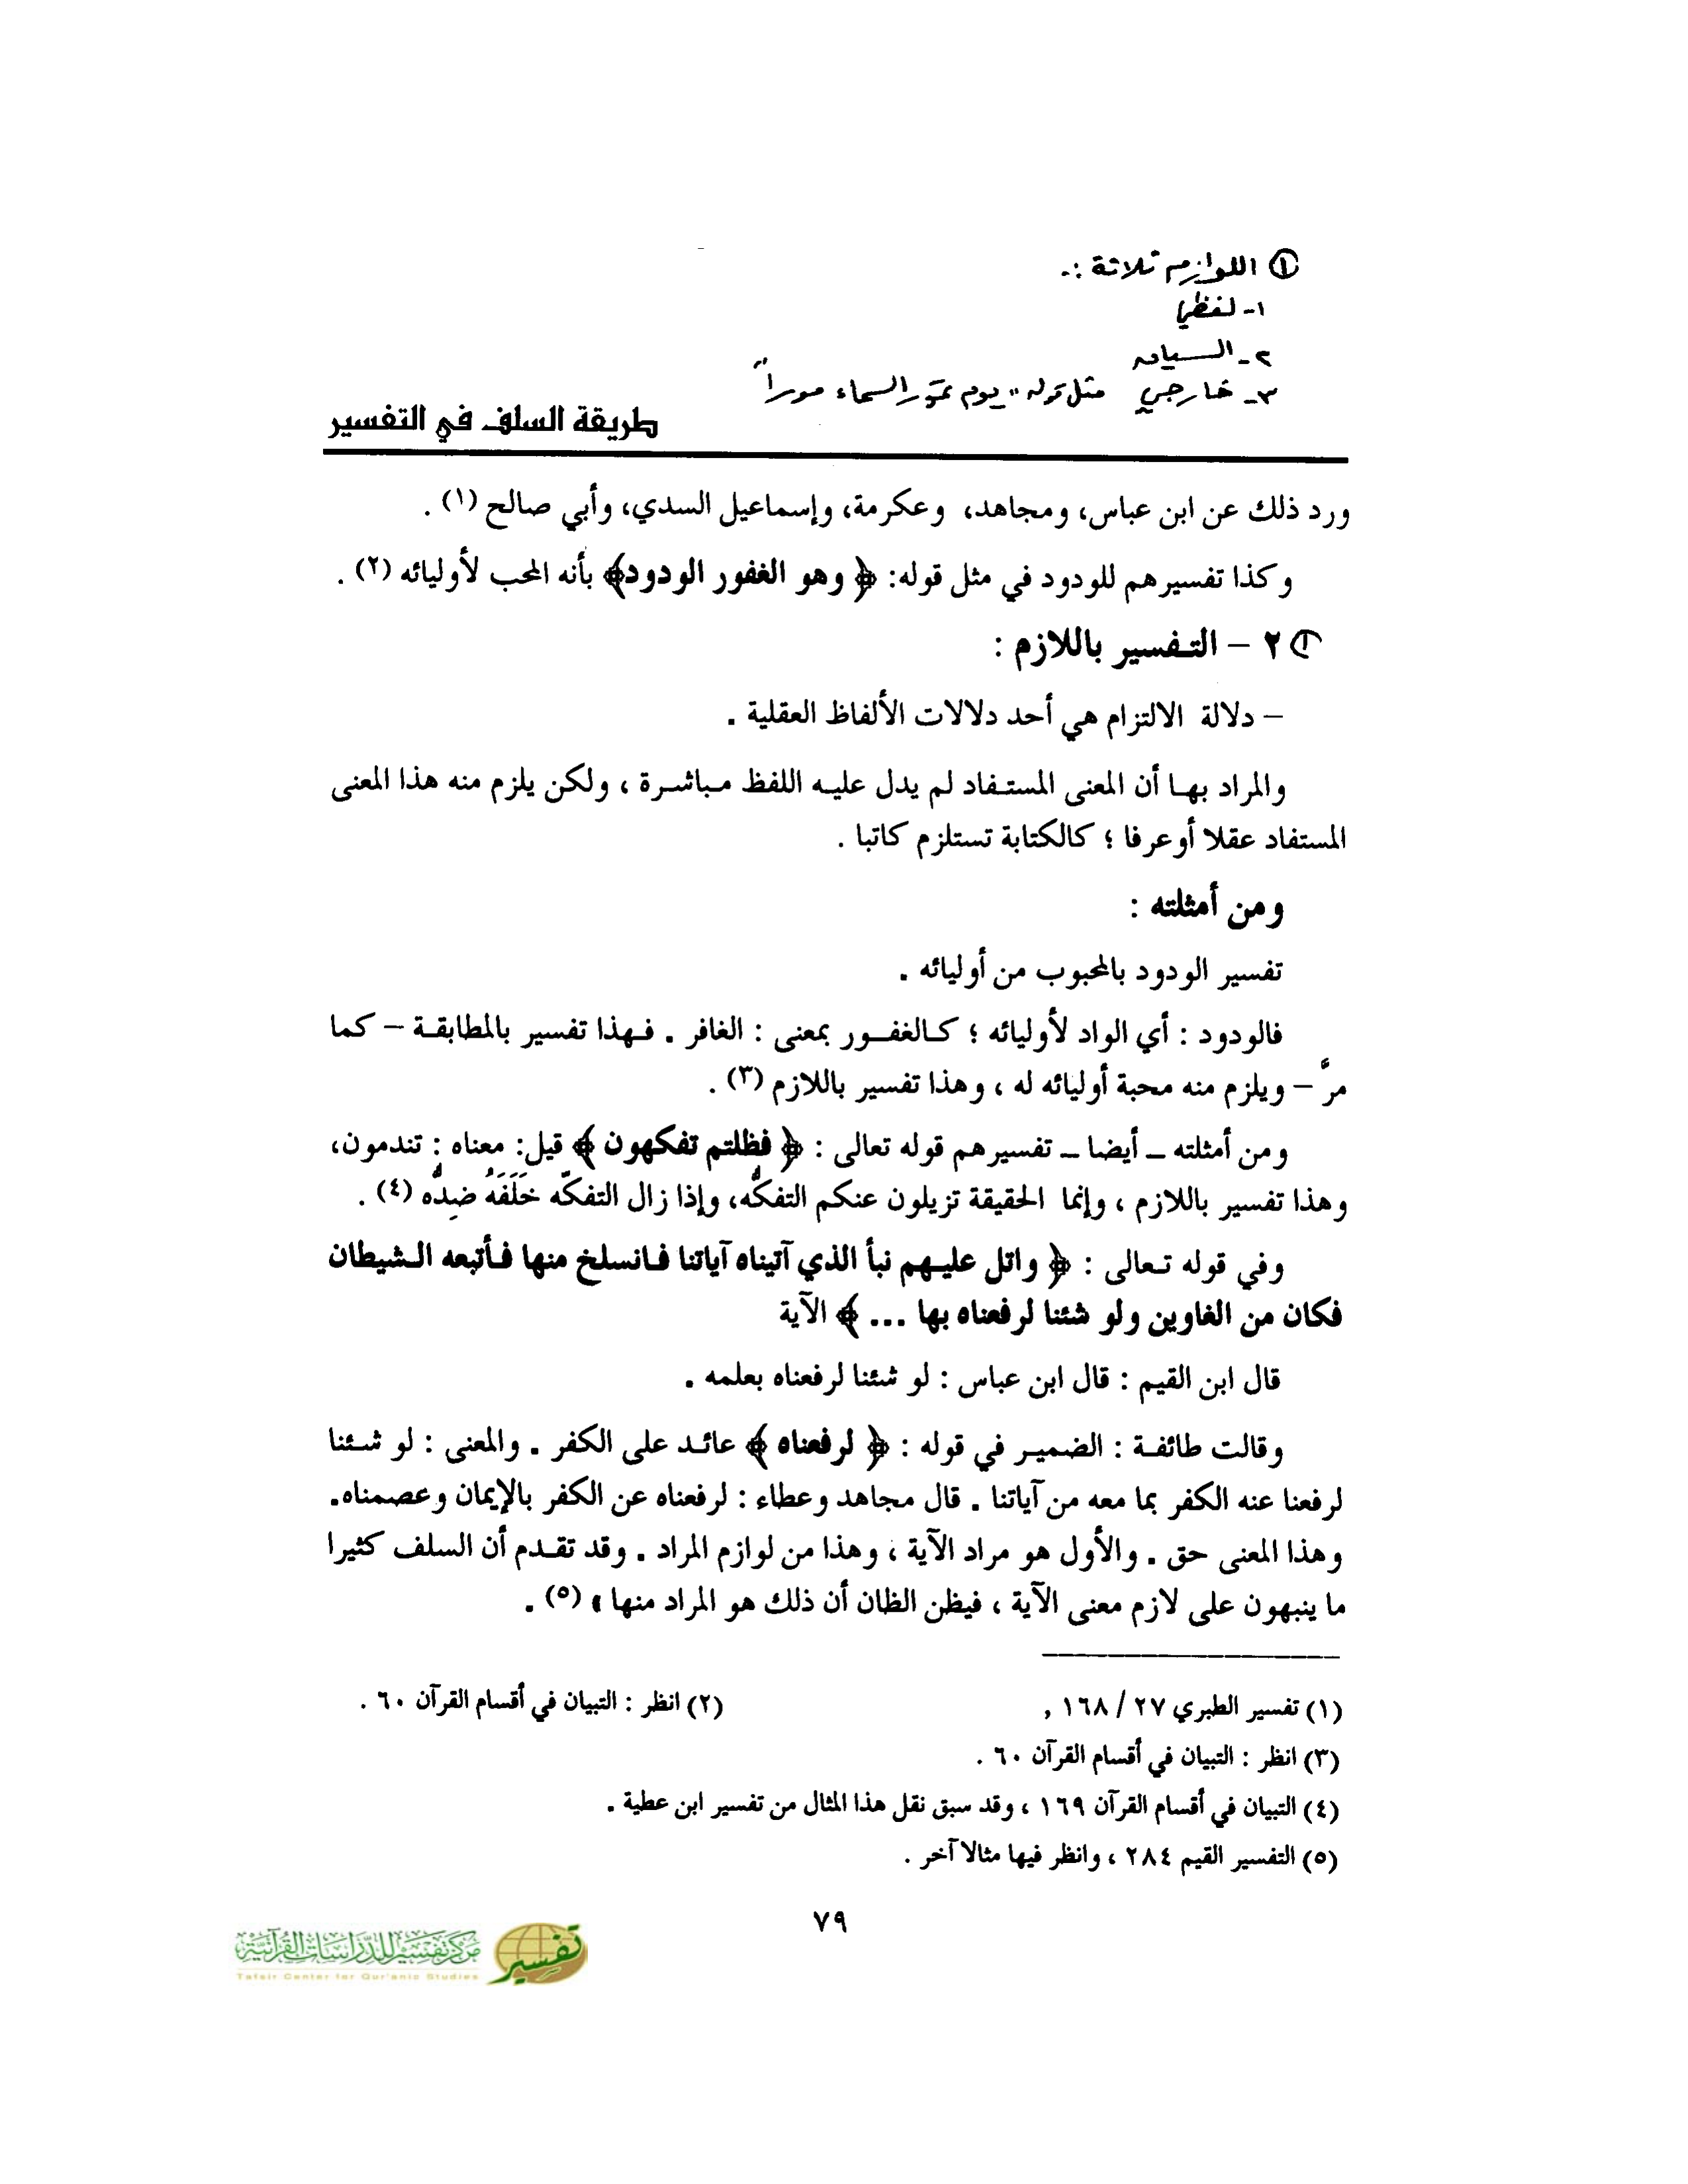 ① اللوازم ثلاثة :-
١- لفظي
٢- السياق
٣- خارجي مثل قوله "يوم تمور السماء مورا"
طريقة السلف في التفسير
ورد ذلك عن ابن عباس، ومجاهد، وعكرمة، وإسماعيل السدي، وأبي صالح (١) .
وكذا تفسيرهم للودود في مثل قوله: ﴿ وهو الغفور الودود﴾ بأنه المحب لأوليائه (٢) .
① ٢ – التفسير باللازم :
– دلالة الالتزام هي أحد دلالات الألفاظ العقلية .
والمراد بها أن المعنى المستفاد لم يدل عليه اللفظ مباشرة ، ولكن يلزم منه هذا المعنى
المستفاد عقلا أوعرفا ؛ كالكتابة تستلزم كاتبا .
ومن أمثلته :
تفسير الودود بالمحبوب من أوليائه .
فالودود : أي الواد لأوليائه ؛ كالغفور بمعنى : الغافر . فهذا تفسير بالمطابقة – كما
مرَّ – ويلزم منه محبة أوليائه له ، وهذا تفسير باللازم (٣) .
ومن أمثلته – أيضا – تفسيرهم قوله تعالى : ﴿ فظلتم تفكهون ﴾ قيل: معناه : تندمون،
وهذا تفسير باللازم ، وإنما الحقيقة تزيلون عنكم التفكُّه، وإذا زال التفكّه خَلَفَهُ ضِدُّه (٤) .
وفي قوله تعالى : ﴿ واتل عليهم نبأ الذي آتيناه آياتنا فانسلخ منها فأتبعه الشيطان
فكان من الغاوين ولو شئنا لرفعناه بها ... ﴾ الآية
قال ابن القيم : قال ابن عباس : لو شئنا لرفعناه بعلمه .
وقالت طائفة : الضمير في قوله : ﴿ لرفعناه ﴾ عائد على الكفر . والمعنى : لو شئنا
لرفعنا عنه الكفر بما معه من آياتنا . قال مجاهد وعطاء : لرفعناه عن الكفر بالإيمان وعصمناه.
وهذا المعنى حق . والأول هو مراد الآية ، وهذا من لوازم المراد . وقد تقدم أن السلف كثيرا
ما ينبهون على لازم معنى الآية ، فيظن الظان أن ذلك هو المراد منها » (٥) .
(١) تفسير الطبري ٢٧ / ١٦٨ , (٢) انظر : التبيان في أقسام القرآن ٦٠ .
(٣) انظر : التبيان في أقسام القرآن ٦٠ .
(٤) التبيان في أقسام القرآن ١٦٩ ، وقد سبق نقل هذا المثال من تفسير ابن عطية .
(٥) التفسير القيم ٢٨٤ ، وانظر فيها مثالا آخر .
٧٩
تفسير
مركز تفسير للدراسات القرآنية
Tafsir Center for Qur'anic Studies